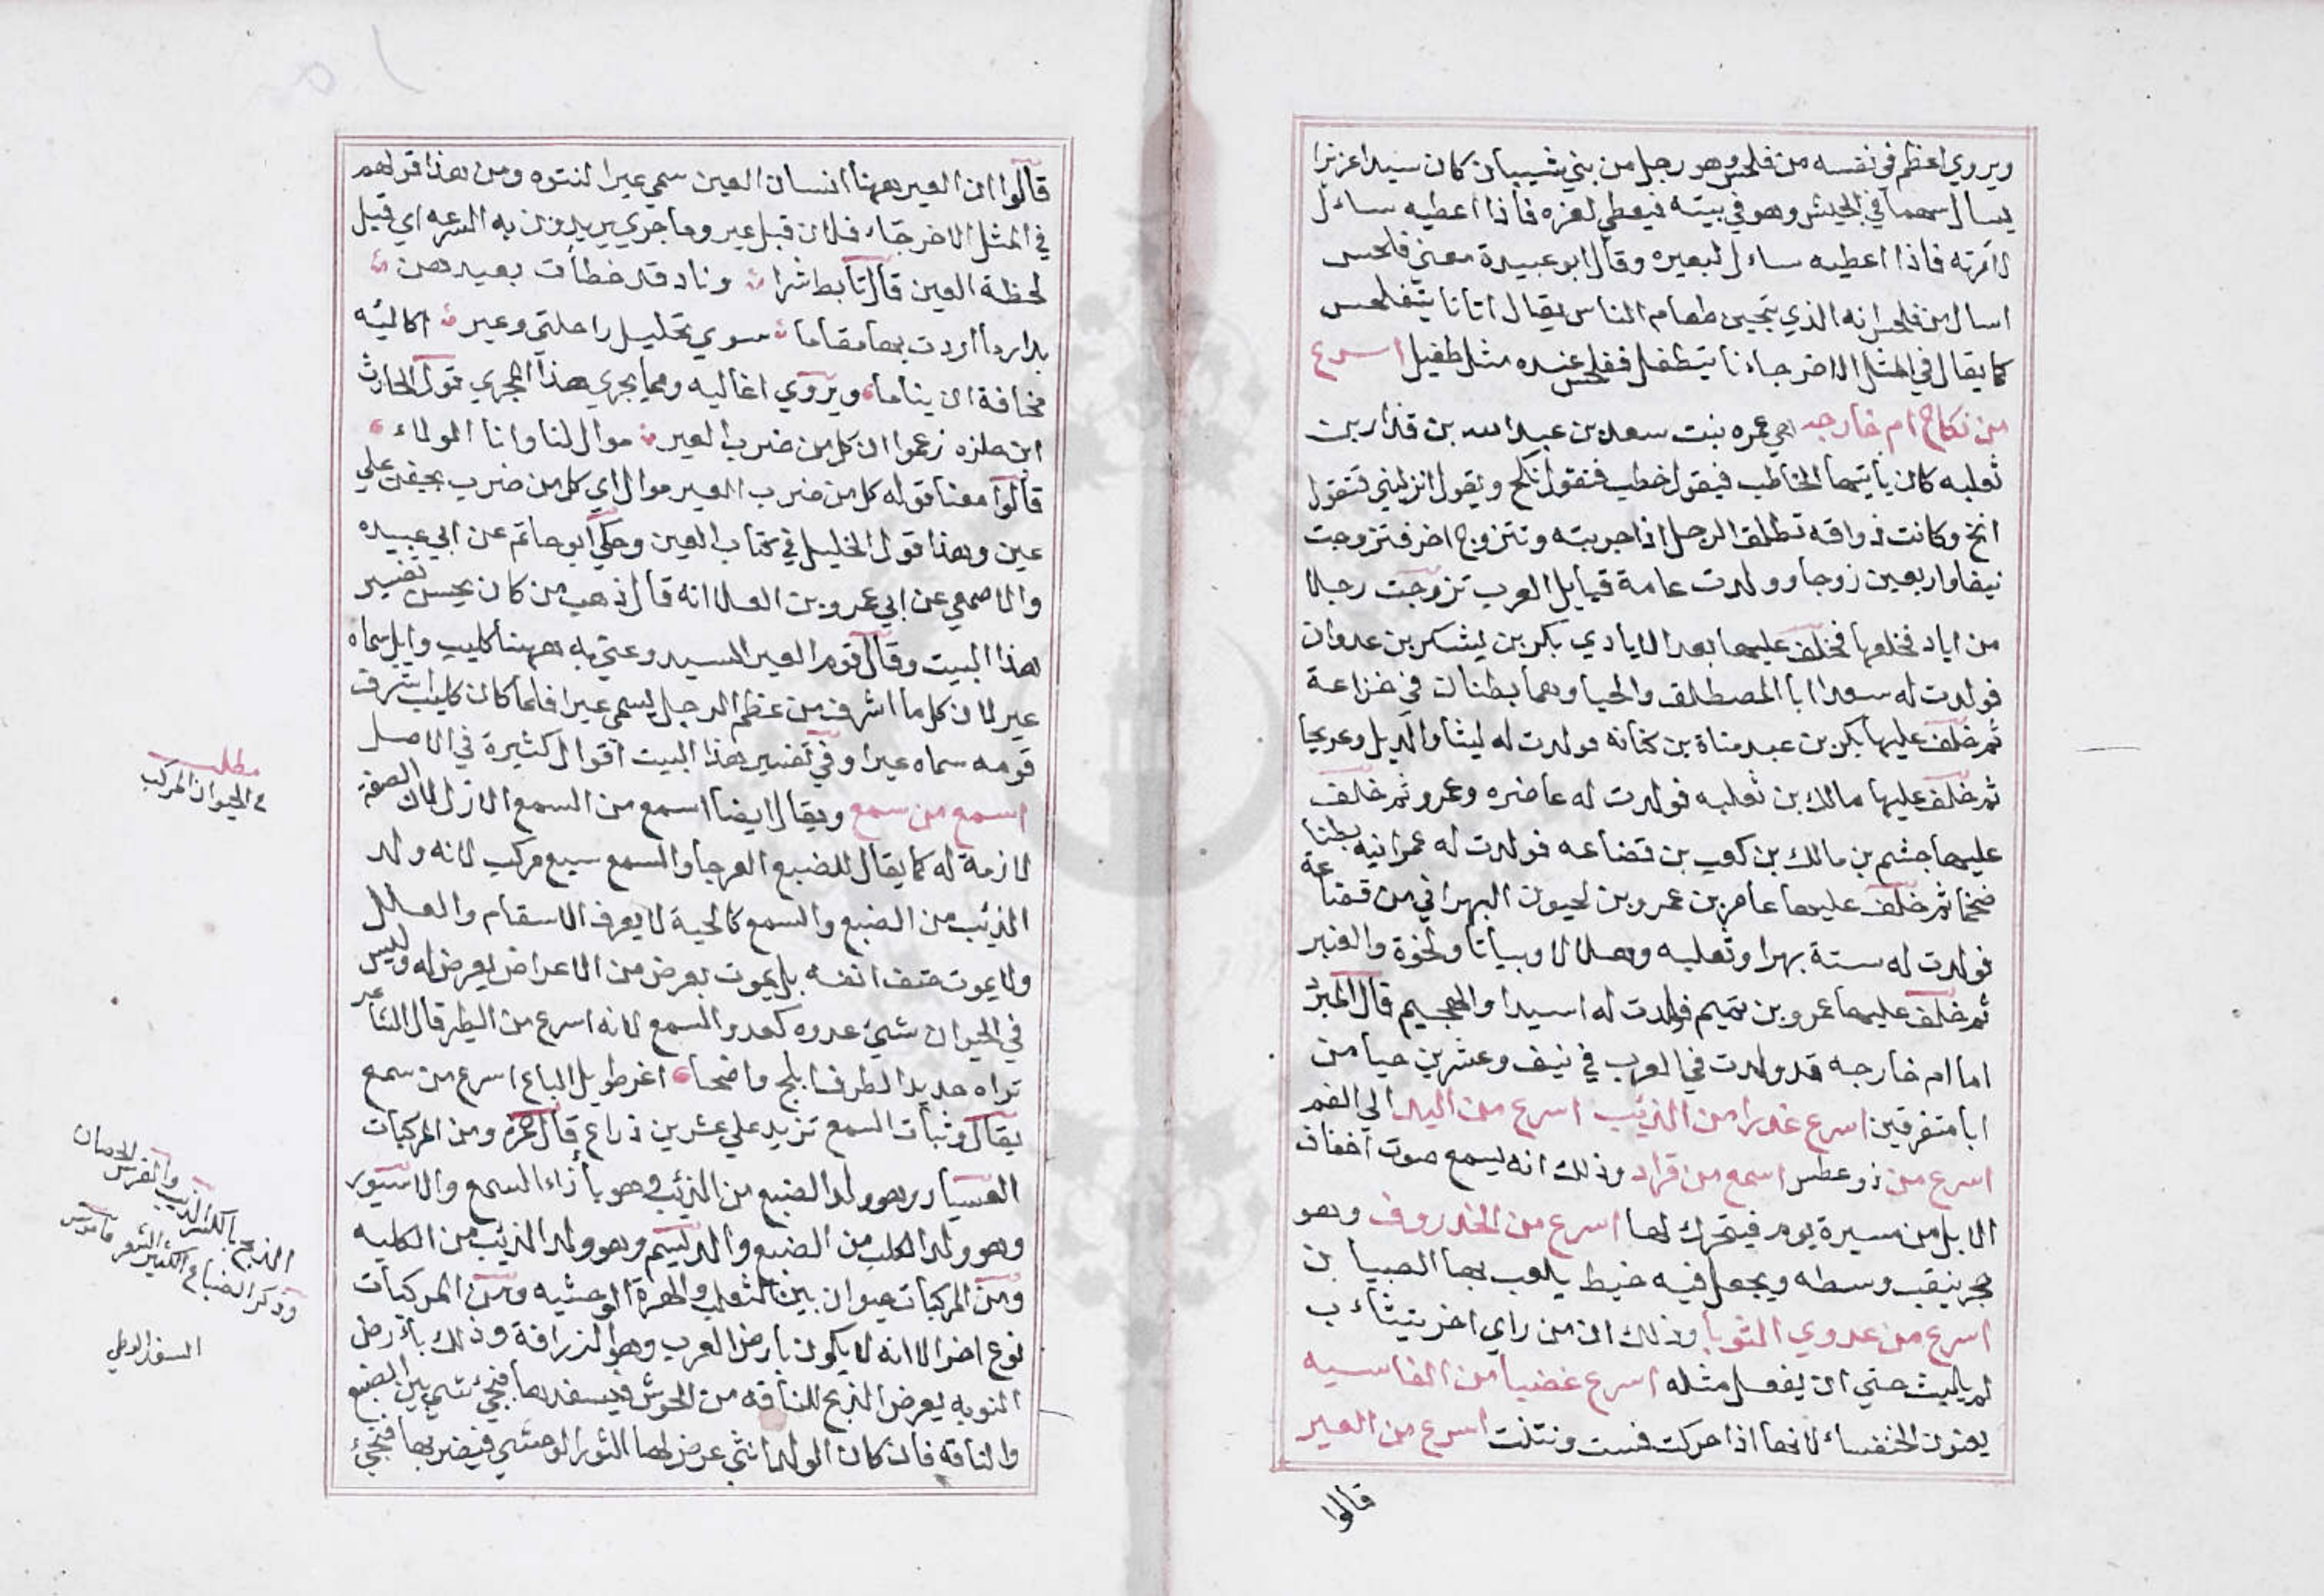 ويروي اعظم في نفسه من فلحس وهو رجل من بني شيبان كان سيدا عزيزا
يسال سهما في الجيش وهو في بيته فيعطي لعزه فاذا اعطيه سال
لامرته فاذا اعطيه سال لبعيره وقال ابو عبيدة معني فلحس
اسال من فلحس انه الذي يتحين طعام الناس يقال اتانا يتفلحس
كما يقال في المثل الاخر جاءنا يتطفل ففلحس عنده مثل طفيل اسرع
من نكاح ام خارجه هي عمره بنت سعد بن عبد الله بن قدار بن
ثعلبه كان ياتيها الخاطب فيقول خطب فتقول نكح ويقول انزليني فتقول
انخ وكانت ذواقه تطلق الرجل اذا جربته وتتزوج اخر فتزوجت
نيفا واربعين زوجا وولدت عامة قبايل العرب تزوجت رجلا
من اياد فخلعها فخلف عليها بعد الايادي بكر بن يشكر بن عدوان
فولدت له سعدا ابا المصطلق والحيا وهما بطنان في خزاعة
ثم خلف عليها بكر بن عبد مناة بن كنانه فولدت له ليثا والديل وعريجا
ثم خلف عليها مالك بن ثعلبه فولدت له عاضره وعمرو ثم خلف
عليها جشم بن مالك بن كعب بن قضاعه فولدت له عمرانيه بطنا
ضخما ثم خلف عليها عامر بن عمرو بن لحيون البهراني من قضاعة
فولدت له ستة بهرا وثعلبه وهلالا وبياتا ولخوة والعنبر
ثم خلف عليها عمرو بن تميم فولدت له اسيدا والهجيم قال المبرد
اما ام خارجه قد ولدت في العرب في نيف وعشرين حيا من
ابا متفرقين اسرع غدرا من الذئب اسرع من اليد الي الفم
اسرع من ذو عطس اسمع من قراد وذلك انه يسمع صوت اخفاف
الابل من مسيرة يوم فيتحرك لها اسرع من الخدروف وهو
حجر ينقب وسطه ويجعل فيه خيط يلعب بها الصبيان
اسرع من عدوي الثوبا وذلك ان من راي اخر يتثاءب
لم يلبث حتي ان يفعل مثله اسرع غضبا من الفاسيه
يعنون الخنفساء لانها اذا حركت فست ونتنت اسرع من العير
قالوا
قالوا ان العير ههنا انسان العين سمي عيرا لنتوه ومن هذا قولهم
في المثل الاخر جاء فلان قبل عير وما جري يريدون به السرعه اي قبل
لحظة العين قال تابط شرا ونار قد خطات بعيد وهن
بدار ما اردت بها مقاما سوي تحليل راحلتي وعير اكاليه
مخافة ان يناما ويروي اغاليه ومما يجري هذا المجري قول الحارث
ابن حلزه زعموا ان كل من ضرب العير موال لنا وانا المولاء
قالوا معنا قوله كل من ضرب العير موال اي كل من ضرب بجفن علي
عين وهذا قول الخليل في كتاب العين وحكي ابو حاتم عن ابي عبيده
والاصمعي عن ابي عمرو بن العلا انه قال ذهب من كان يحسن تفسير
هذا البيت وقال قوم العير السيد وعني به ههنا كليب وايل سماه
عير لان كل ما اشرف من عظم الرجل يسمي عيرا فلما كان كليب اشرف
قومه سماه عيرا وفي تفسير هذا البيت اقوال كثيرة في الاصل
اسمع من سمع ويقال ايضا اسمع من السمع الازل لان الصفة
لازمة له كما يقال للضبع العرجا والسمع سبع مركب لانه ولد
الذئب من الضبع والسمع كالحية لا يعرف الاسقام والعلل
ولا يموت حتف انفه بل يموت بعرض من الاعراض يعرض له وليس
في الحيوان شيئ عدوه كعدو السمع لانه اسرع من الطير قال الشاعر
تراه حديد الطرف ابلج واضحا اغر طويل الباع اسرع من سمع
يقال وثبات السمع تزيد علي عشرين ذراع قال حمزة ومن المركبات
العسبار وهو ولد الضبع من الذئب وهو بأزاء السمع والاسبور
وهو ولد الكلب من الضبع والديسم وهو ولد الذئب من الكلبه
ومن المركبات حيوان بين الثعلب والهرة الوحشيه ومن المركبات
نوع اخر الا انه لا يكون بارض العرب وهو الزرافة وذلك بأرض
النوبه يعرض الذيح للناقه من الحوش فيسفدها فيجئ شيء بين الضبع
والناقه فان كان الولد انثي عرض لها الثور الوحشي فيضربها فيجئ
مطلب
في الحيوان المركب
الذيح بالكسر الذيب والفرس الحصان
وذكر الضباع الكثير الشعر قاموس
السفد الوطي